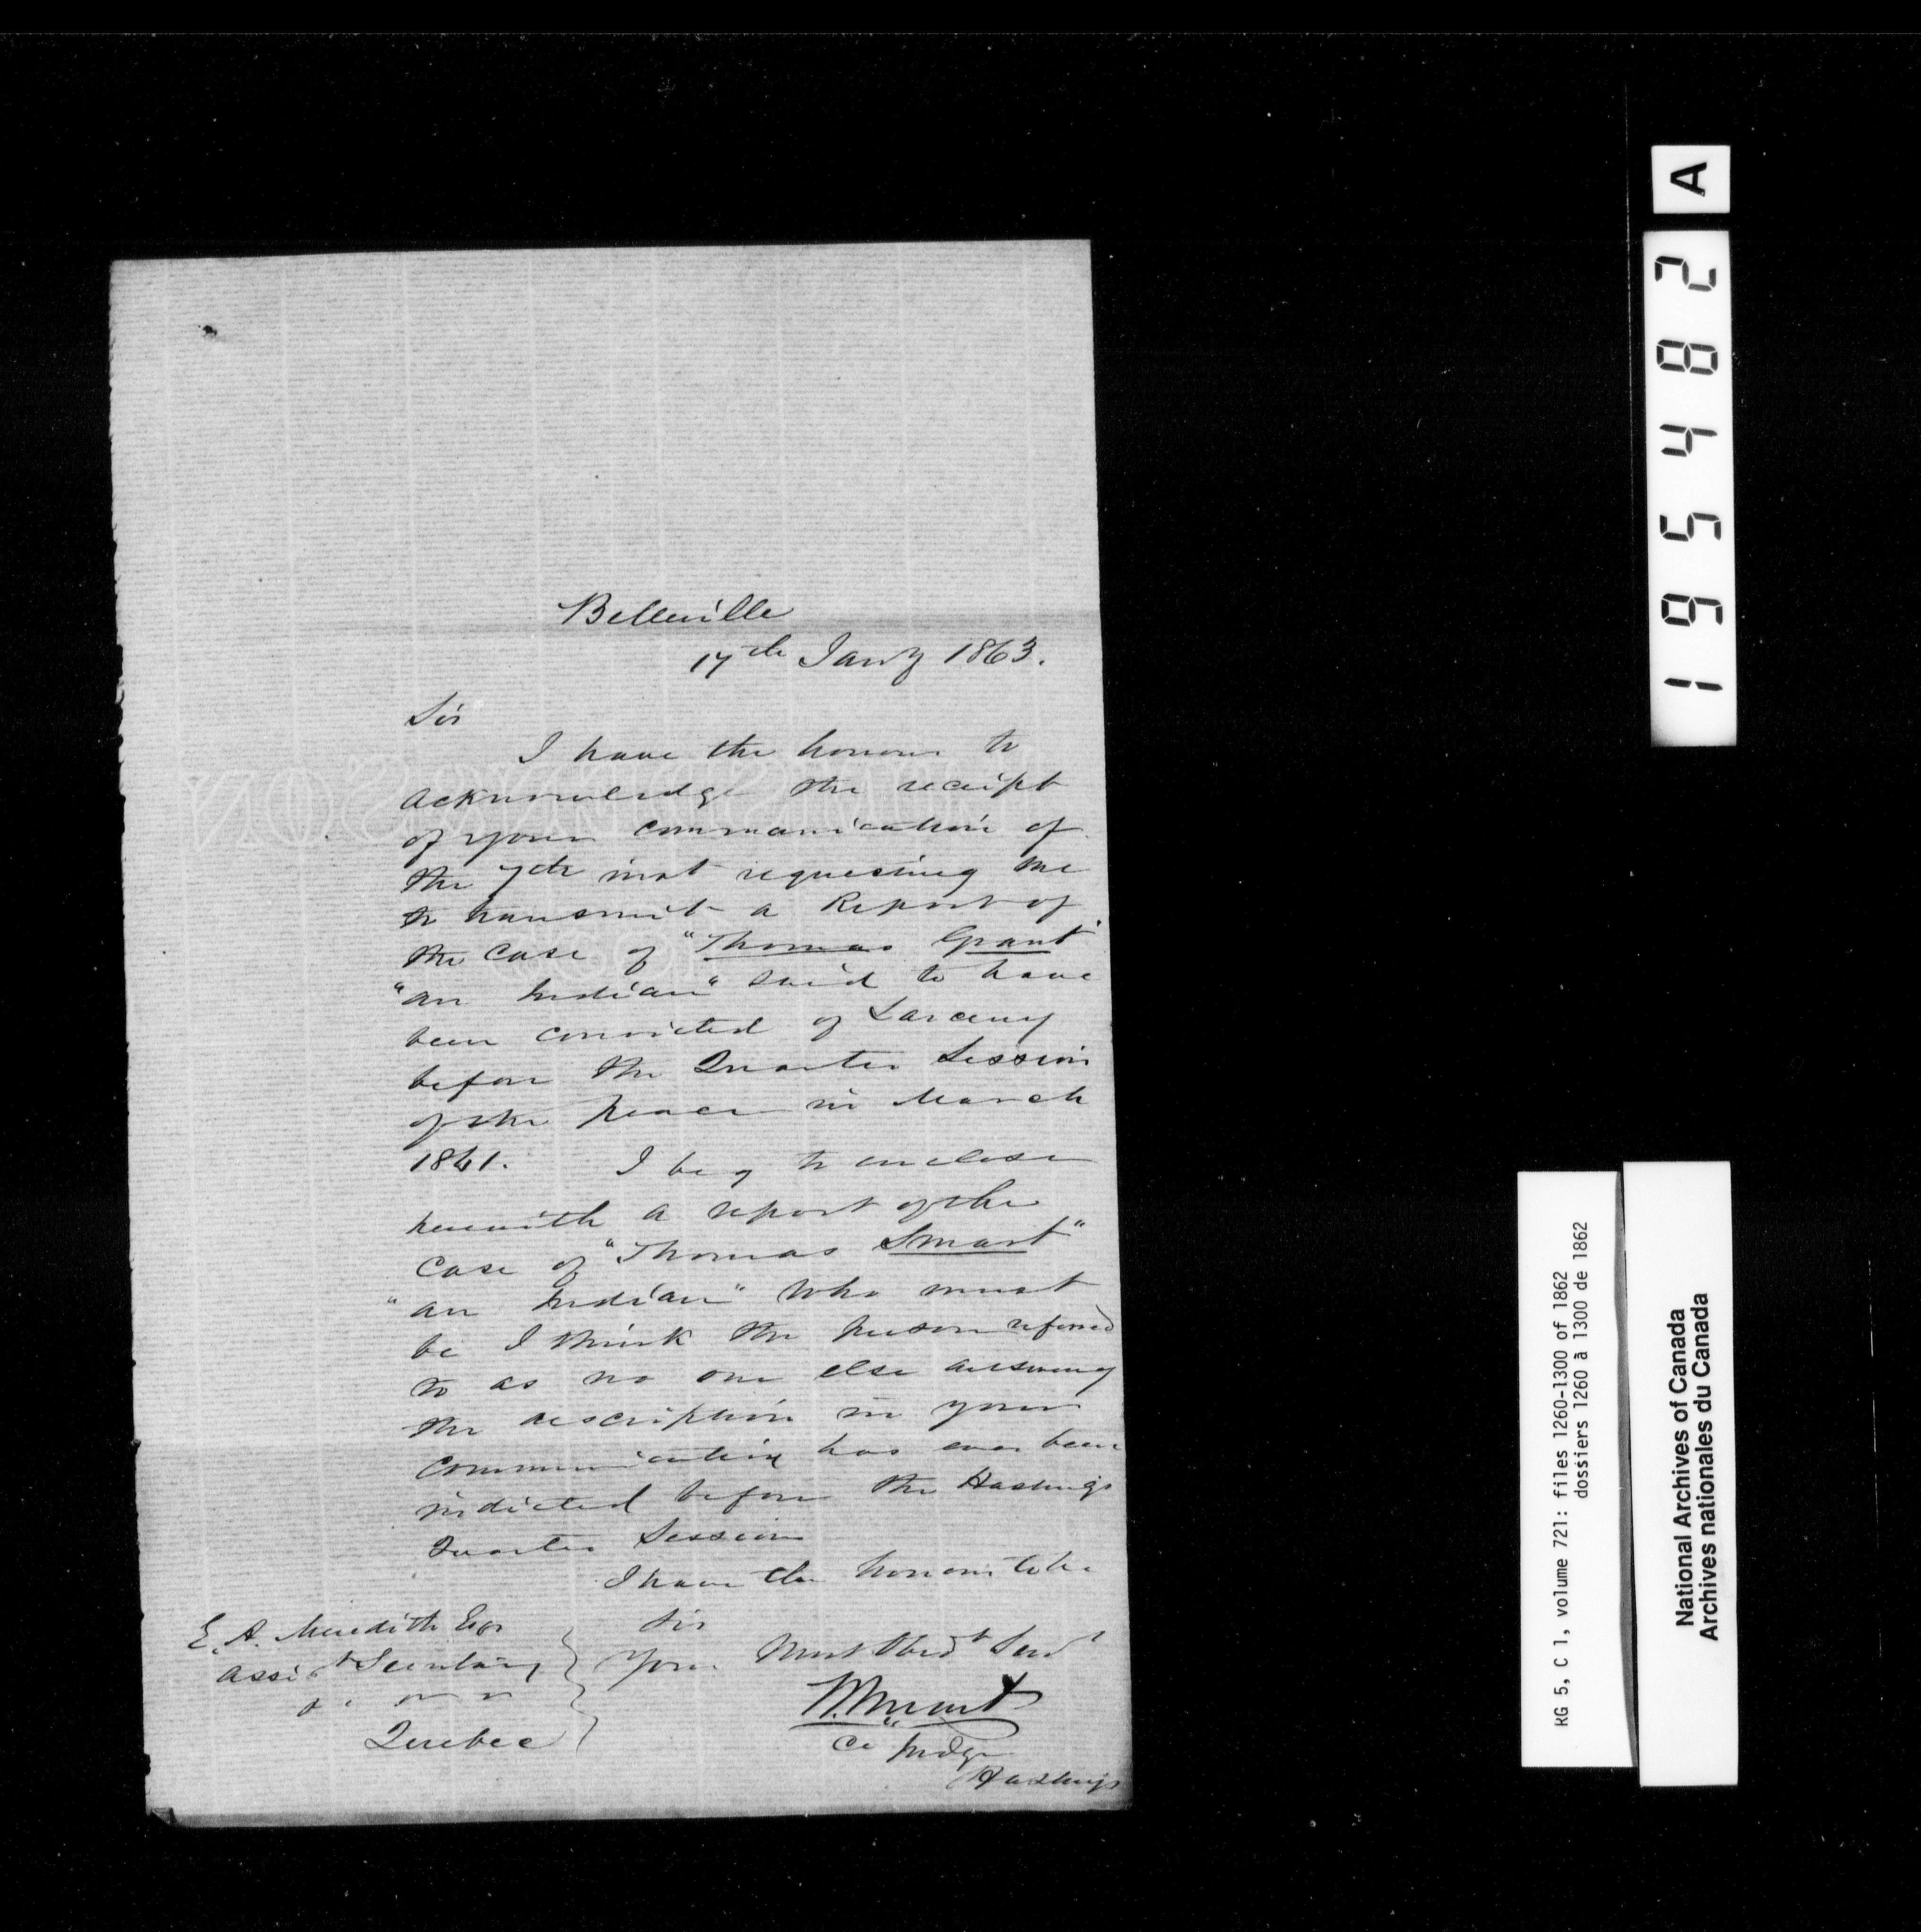 Belleville
17th Jany 1863.
Sir
I have the honour to
acknowledge the receipt
of your communication of
the 7th inst requesting me
to transmit a Report of
the case of "Thomas Grant"
"an Indian" said to have
been convicted of Larceny
before the Quarter Session
of the peace in March
1861. I beg to enclose
herewith a report of the
case of "Thomas Smart"
"an Indian" who must
be I think the person referred
to as no one else answering
the description in your
communication has ever been
indicted before the Hastings
Quarter Session
I have the honour to be
Sir
Your Most Obedt Servt
Co Judge
Hastings
E. A. Meredith Esqr
Assist Secretary
Quebec
195482 A
RG 5, C 1, volume 721: files 1260-1300 of 1862
dossiers 1260 à 1300 de 1862
National Archives of Canada
Archives nationales du Canada